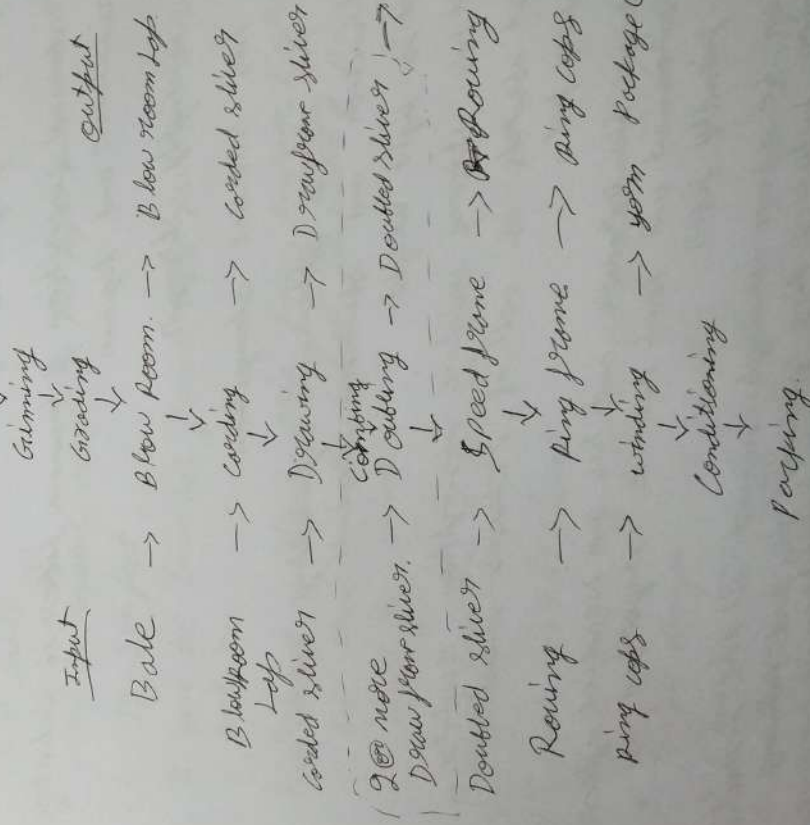 Ginning
↓
Grading
↓
Input Output
Bale → Blow Room. → Blow room Lap
↓
Blowroom Lap → Carding → Carded sliver
↓
Carded sliver → Drawing → Drawframe sliver
↓
Combing
(2 or more Draw frame sliver. → Doubling → Doubled sliver →
↓
Doubled sliver → Speed frame → Rouing
↓
Rouing → Ring frame → Ring cops
↓
Ring cops → winding → yarn Package(
↓
Conditioning
↓
Packing.